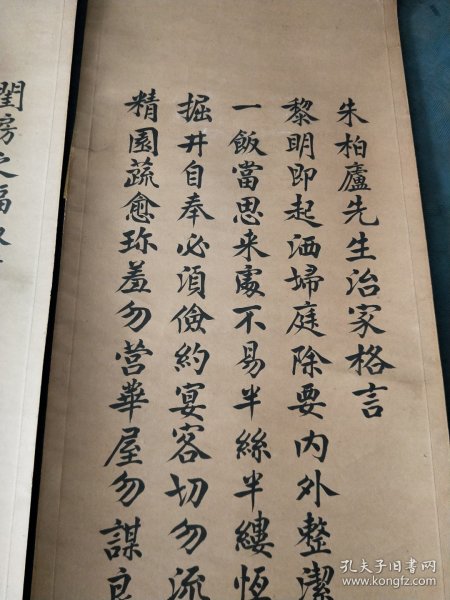 朱柏廬先生治家格言
黎明即起洒掃庭除要內外整潔
一飯當思来處不易半絲半縷恆
掘井自奉必須儉約宴客切勿流
精園蔬愈珍羞勿營華屋勿謀良
閨房之福
孔夫子旧书网
www.kongfz.com